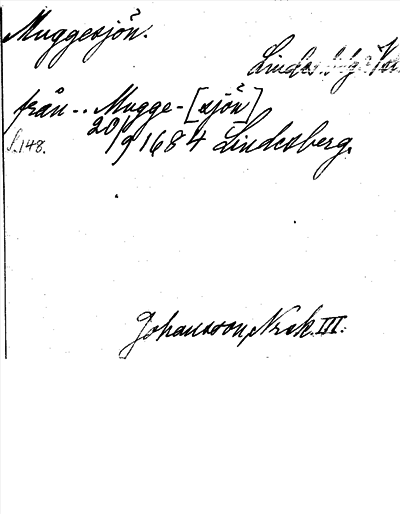 Muggesjön.
från -.. Mugge-[sjön]
20/9 1684 Lindesberg.
S. 148.
Johansson, Nrsk. III: